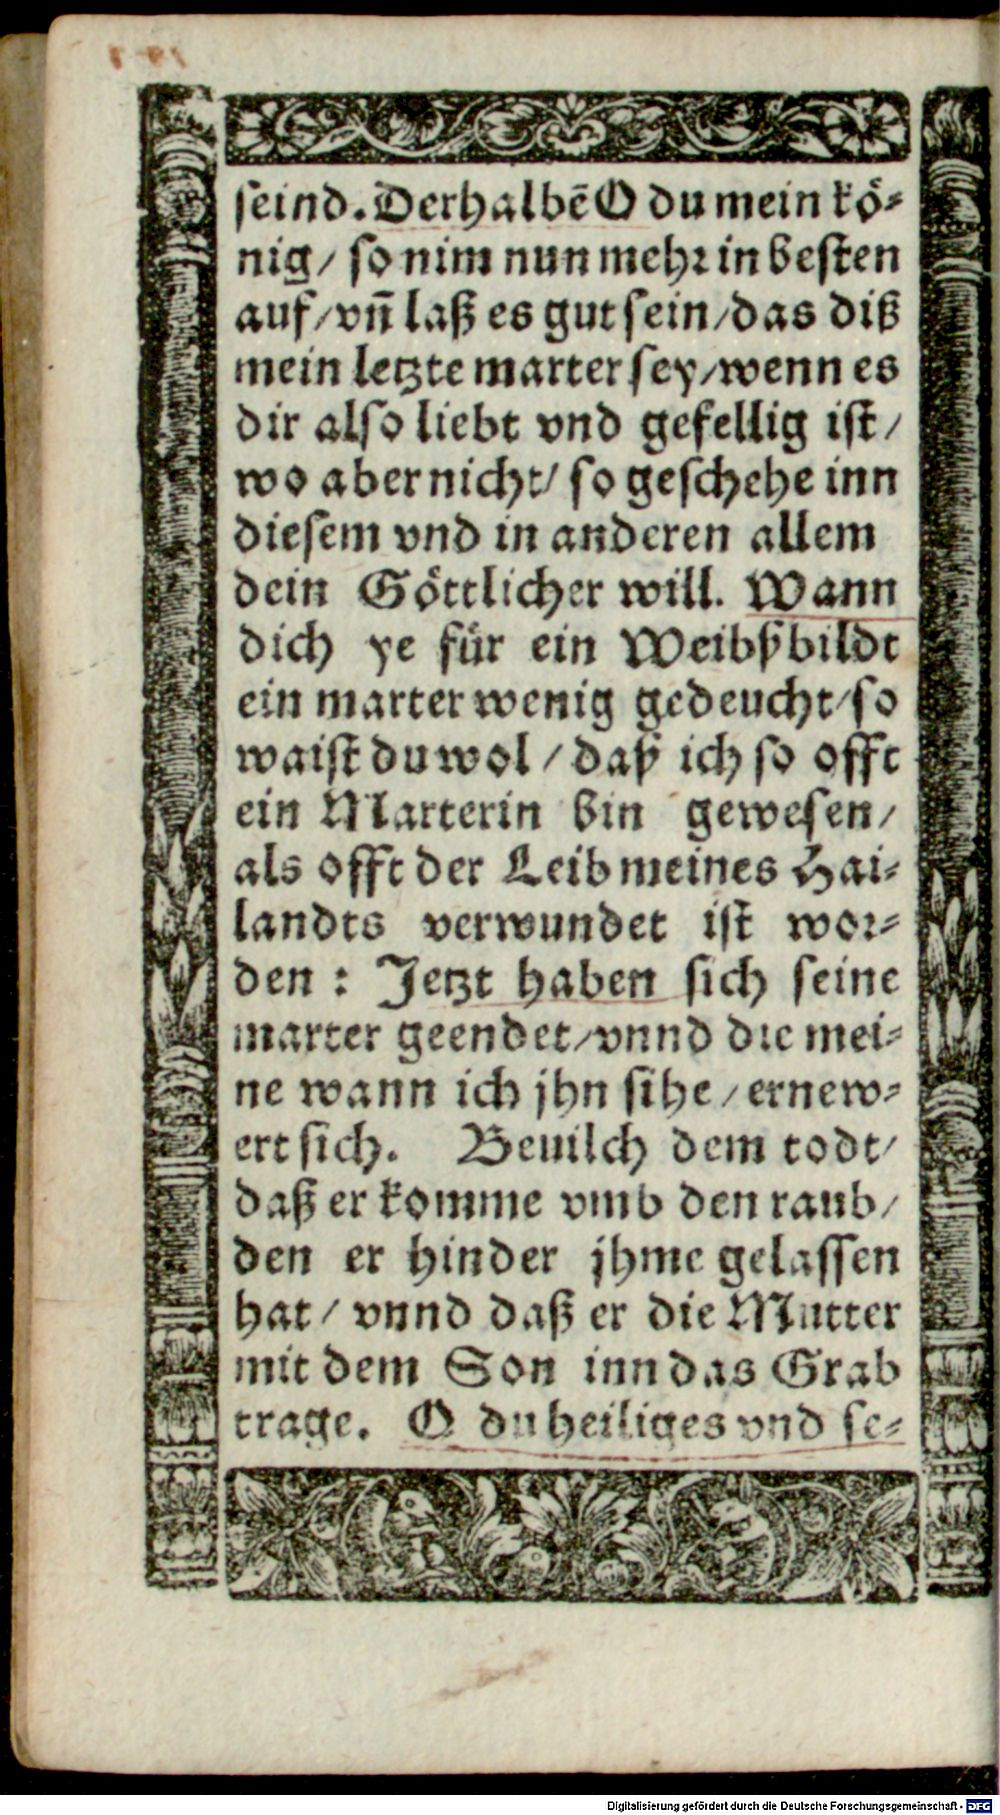 seind. Derhalbē O du mein kö⸗
nig/ so nim nun mehr in besten
auf/ vñ laß es gut sein/ das diß
mein letzte marter sey/ wenn es
dir also liebt vnd gefellig ist/
wo aber nicht/ so geschehe inn
diesem vnd in anderen allem
dein Göttlicher will. Wann
dich ye für ein Weibßbildt
ein marter wenig gedeucht/ so
waist du wol/ daß ich so offt
ein Marterin bin gewesen/
als offt der Leib meines Hai⸗
landts verwundet ist wor⸗
den: Jetzt haben sich seine
marter geendet/ vnnd die mei⸗
ne wann ich jhn sihe/ ernew⸗
ert sich. Beuilch dem todt/
daß er komme vmb den raub/
den er hinder jhme gelassen
hat/ vnnd daß er die Mutter
mit dem Son inn das Grab
trage. O du heiliges vnd se⸗
Digitalisierung gefördert durch die Deutsche Forschungsgemeinschaft - DFG